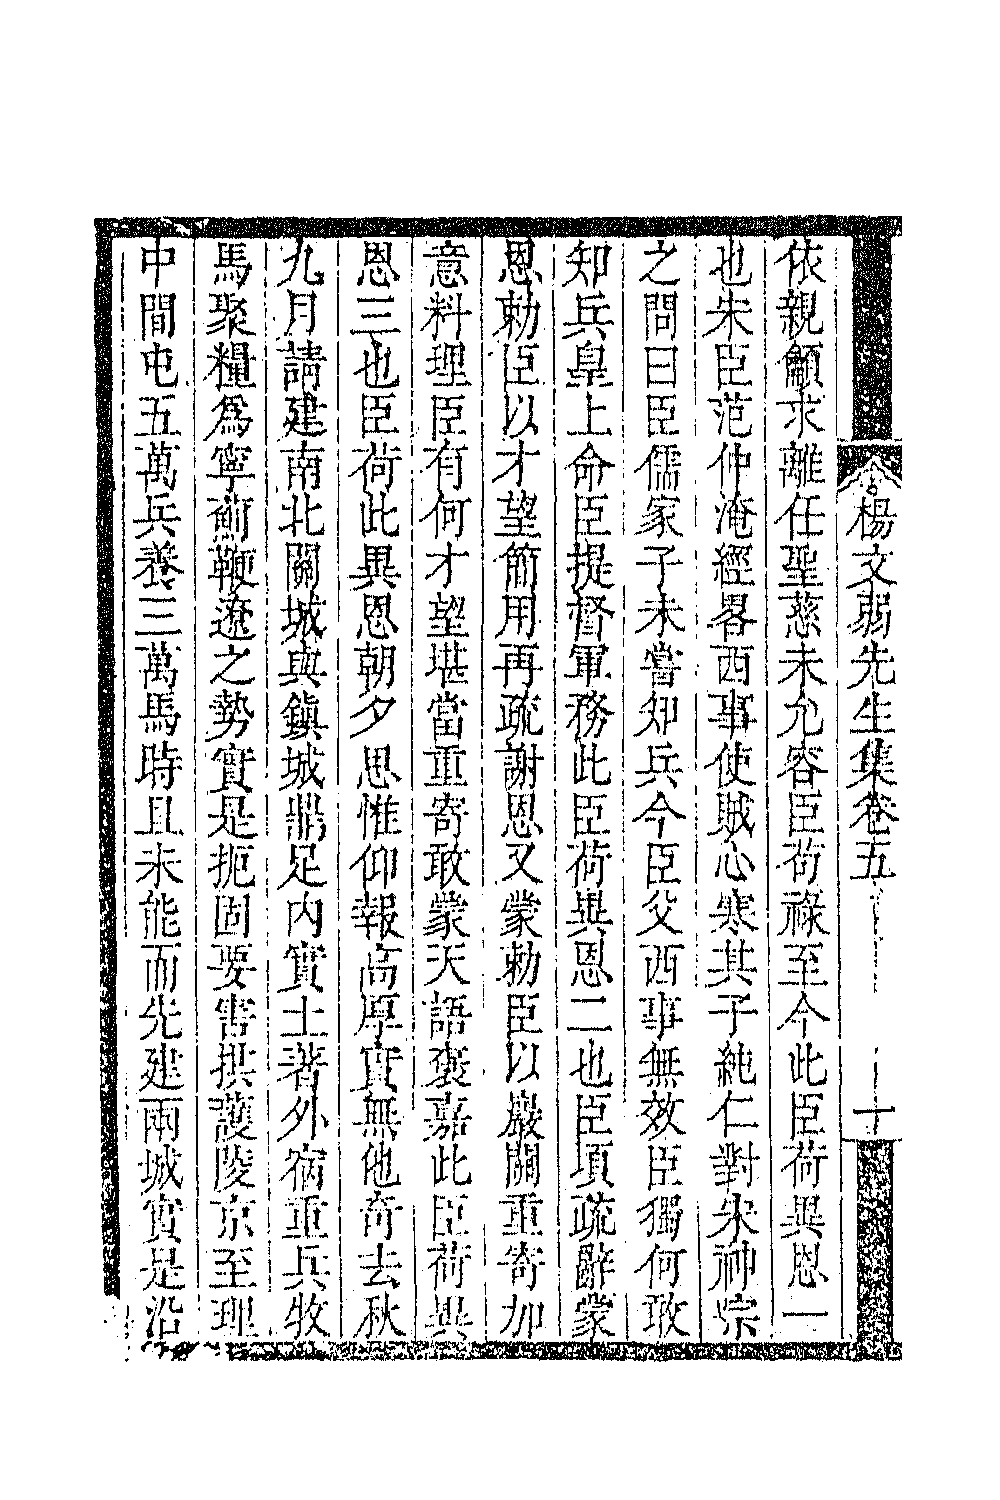 楊文弱先生集卷五
十
依親顧求離任聖慈未允容臣苟祿至今此臣荷異恩一
也宋臣范仲淹經畧西事使賊心寒其子純仁對宋神宗
之問曰臣儒家子未嘗知兵今臣父西事無效臣獨何敢
知兵皇上命臣提督軍務此臣荷異恩二也臣項疏辭蒙
恩勅臣以才望簡用再疏謝恩又蒙勅臣以巖關重寄加
意料理臣有何才望堪當重寄敢蒙天語褒嘉此臣荷異
恩三也臣荷此異恩朝夕思惟仰報高厚實無他奇去秋
九月請建南北關城與鎮城鼎足內實土著外宿重兵牧
馬聚糧爲寧薊鞭遼之勢實是扼固要害拱護陵京至理
中間屯五萬兵養三萬馬時且未能而先建兩城實是沿